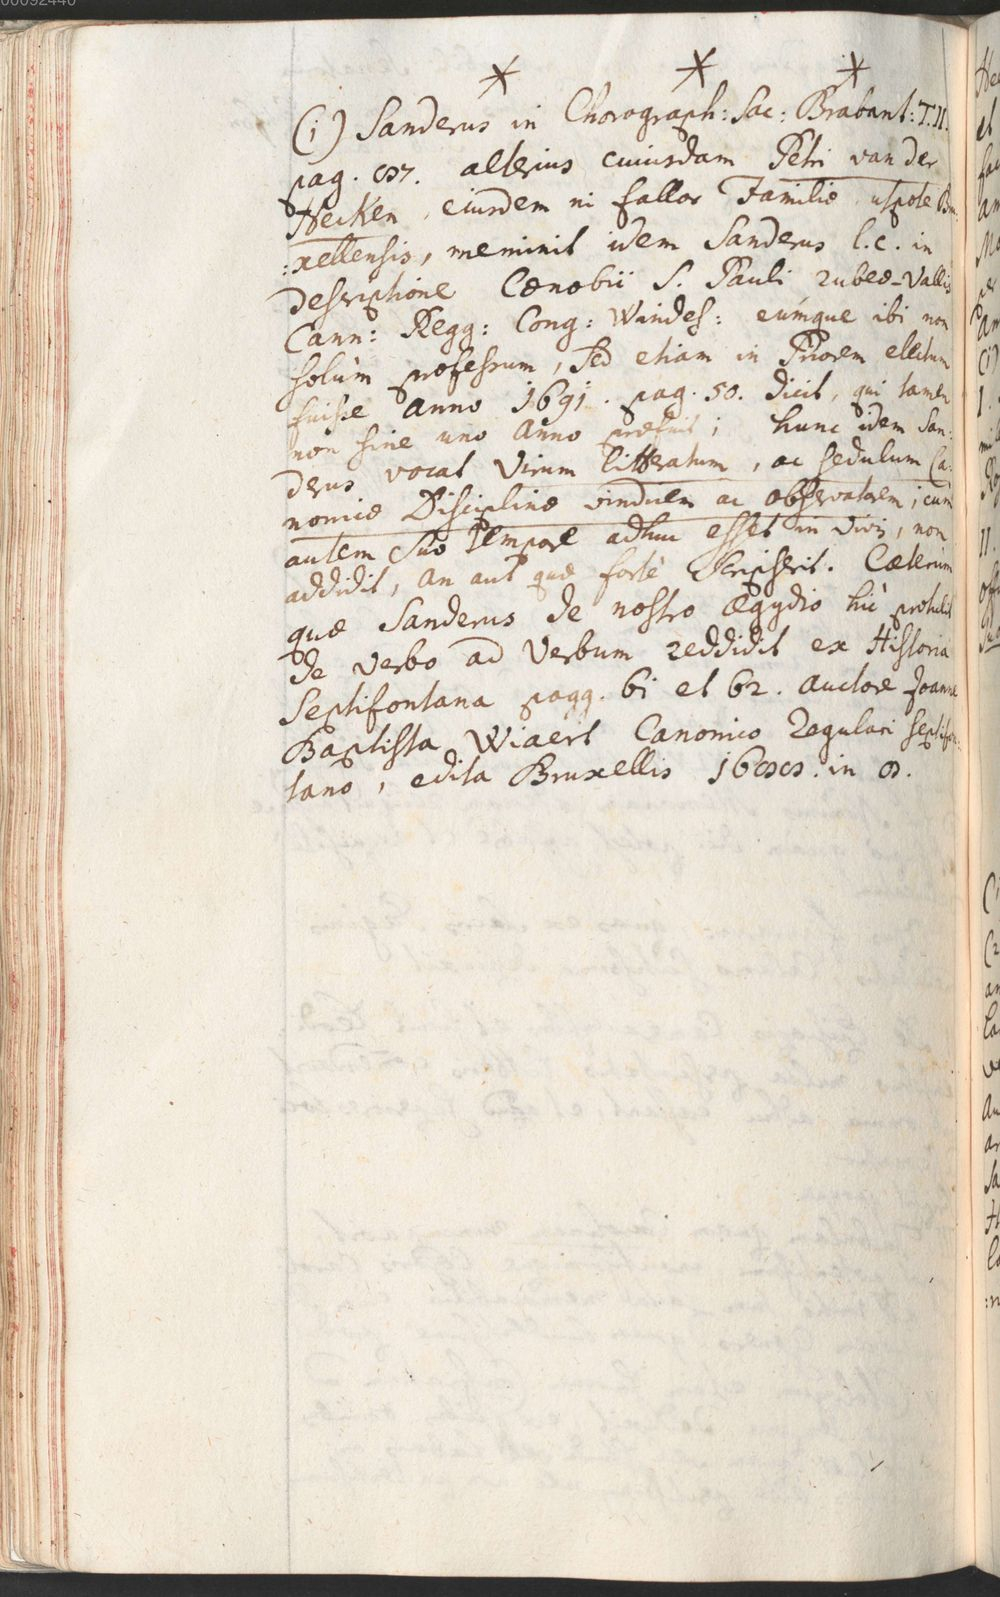 00092440
* * *
(1) Sanderus in Chorograph: Sac: Brabant: T. II.
pag. 87. alterius cuiusdam Petri van der
Hecken, eiusdem ni fallor Familiæ, utpote Bru:
:xellensis, meminit idem Sanderus l. c. in
descriptione Cœnobii S. Pauli rubeæ-Vallis
Cann: Regg: Cong: Windes: eúmque ibi non
solùm professum, sed etiam in Priorem electum
fuisse anno 1691. pag. 50. dicit, qui tamen
non sine uno Anno præfuit; hunc idem San:
derus vocat Virum litteratum, ac sedulum Ca:
nonicæ Disciplinæ vindicem ac observatorem; cum
autem suo tempore adhuc esset in vivis, non
addidit, an aut quæ fortè scripserit. Cæterùm
quæ Sanderus de nostro Ægydio hic protulit
de verbo ad verbum reddidit ex Historia
Septifontana pagg. 61 et 62. auctore Joanne
Baptista Wiaert Canonico Regulari septifon:
tano, edita Bruxellis 1688. in 8.